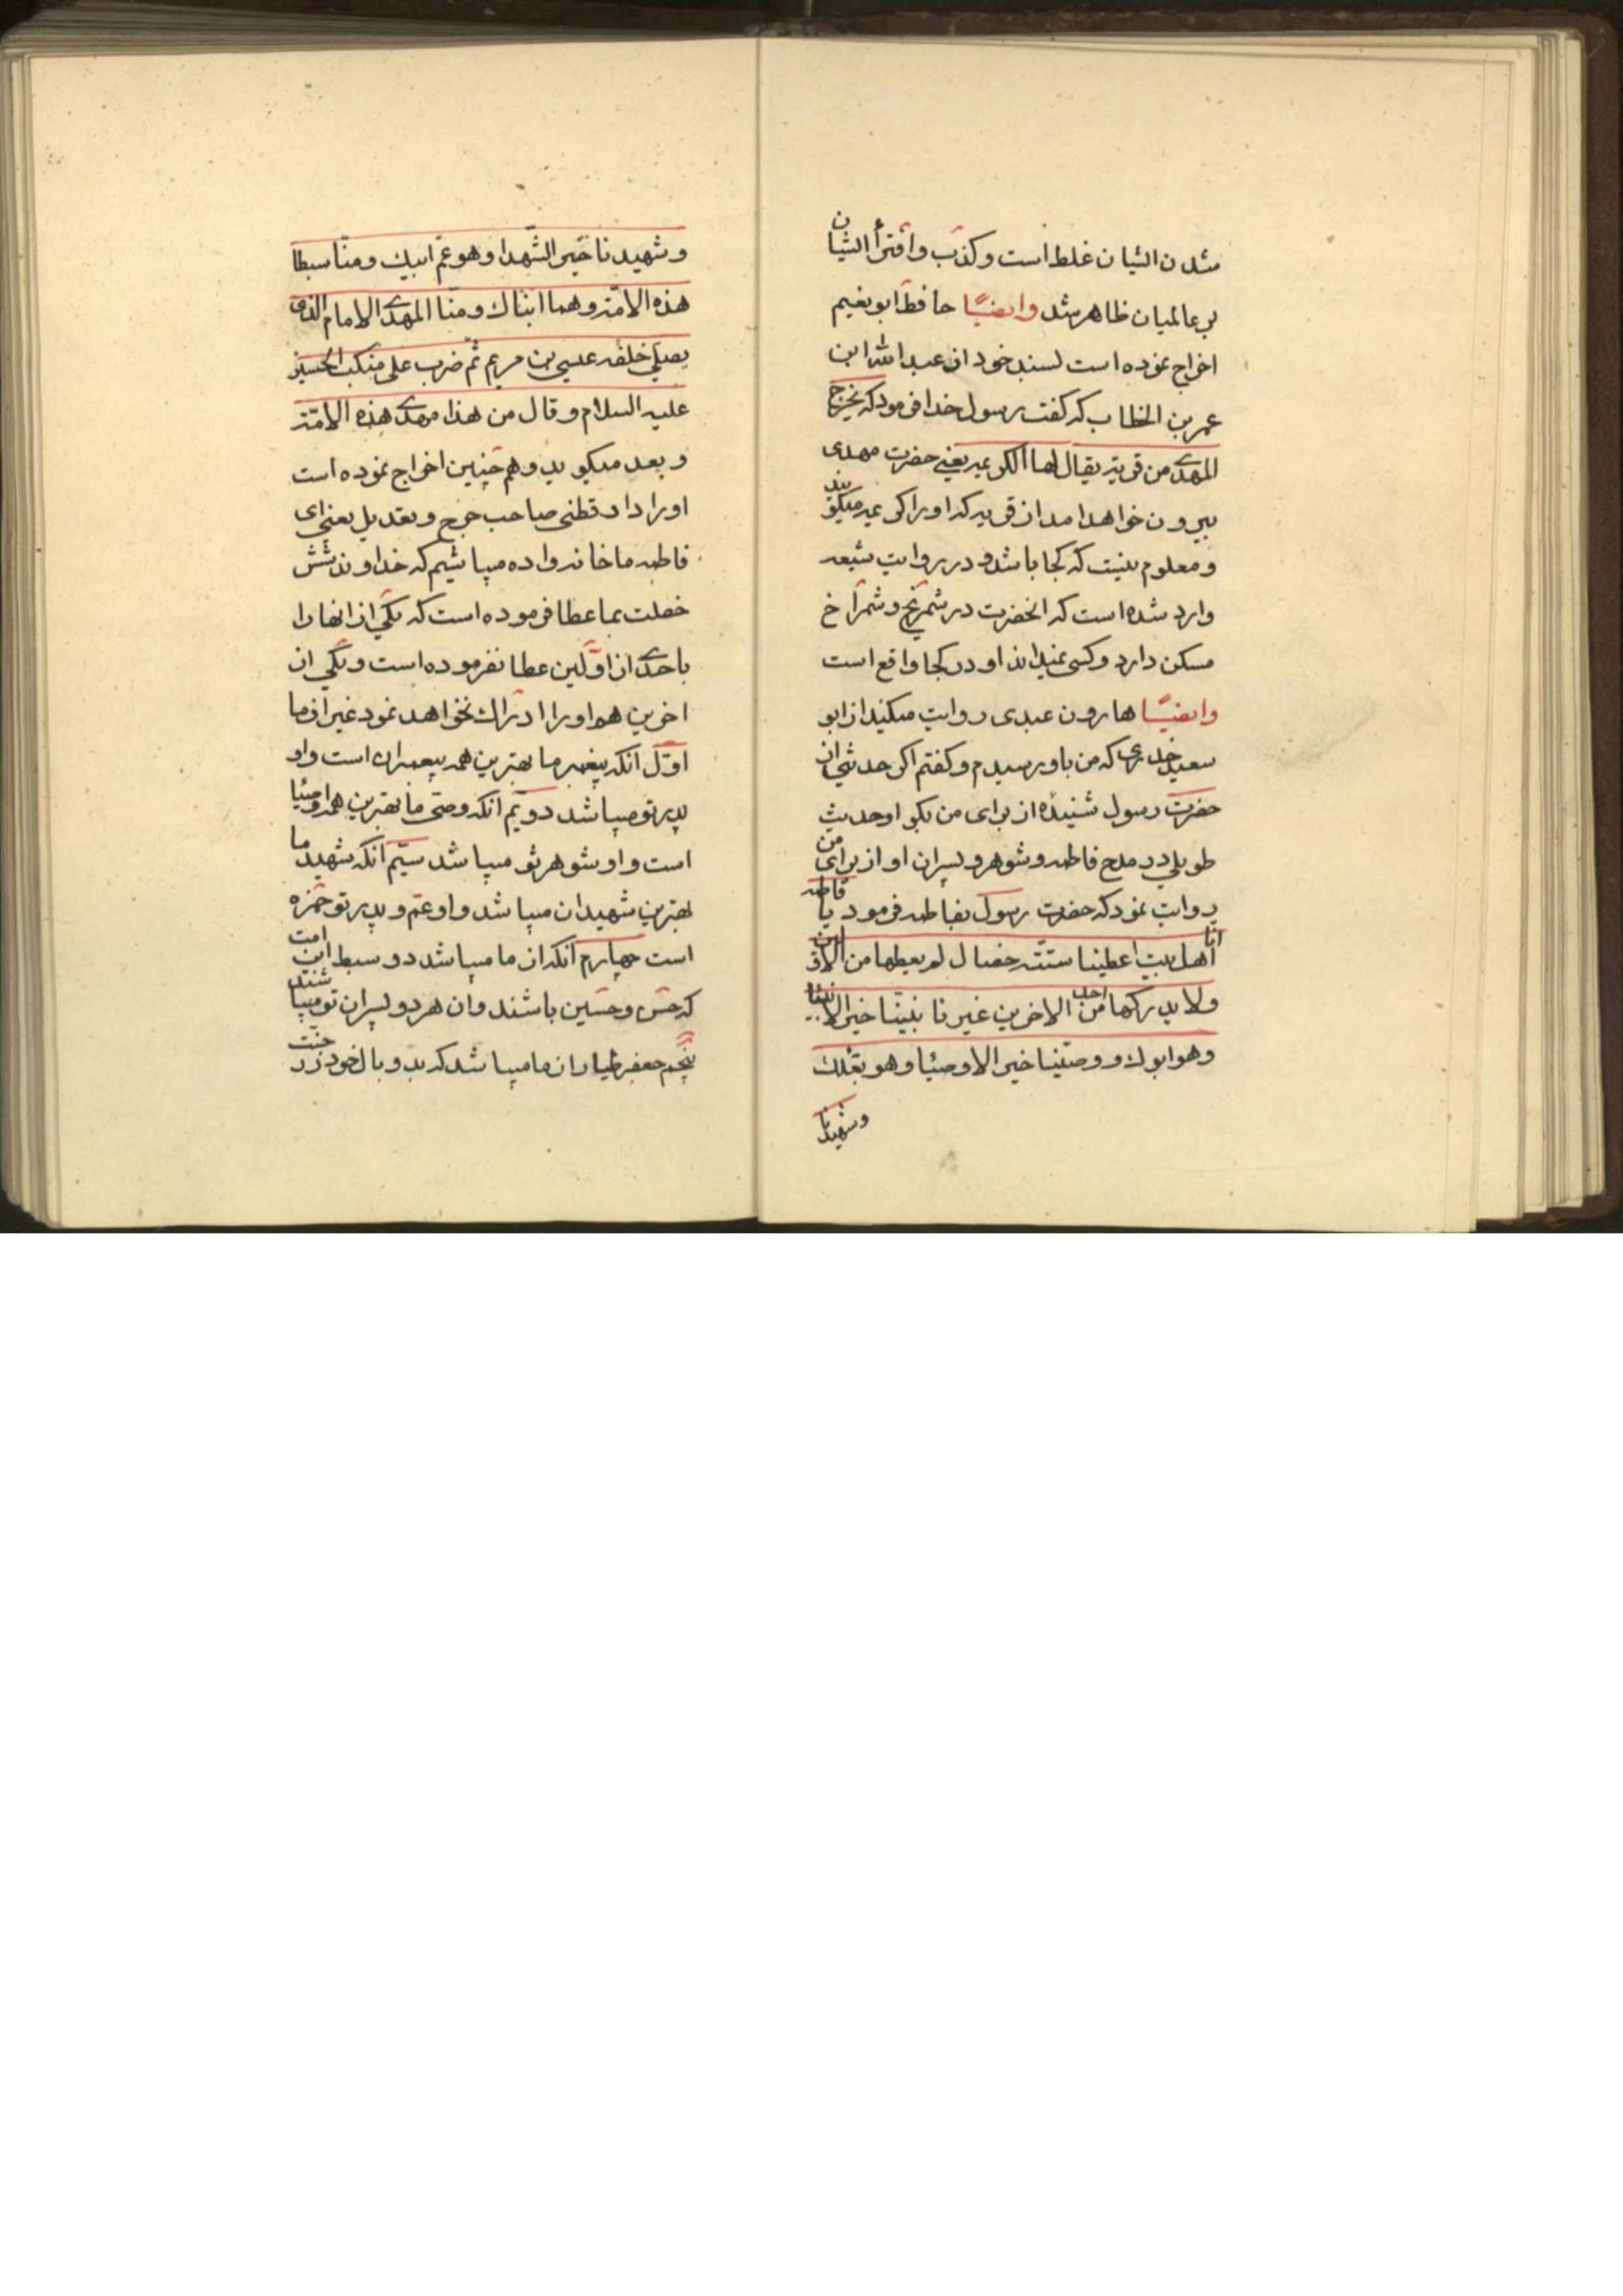 شدن الشیان غلط است و کذب و افترأ الشیان
بر عالمیان ظاهر شد وایضیًا حافظ ابو نعیم
اخراج نموده است بسند خود از عبد الله ابن
عمر بن الخطاب که کفت رسول خدا فرمود که یخرج
المهدی من قریة یقال لها الکریمه یعنی حضرت مهدی
بیرون خواهد امد از قریه که او را کریمه میکویند
و معلوم نیست که کجا باشد و در روایت شیعه
وارد شده است که انحضرت در شمریخ و شمراخ
مسکن دارد و کسی نمیداند او در کجا واقع است
وایضیًا هارون عبدی روایت میکند از ابو
سعید خدری که من باو رسیدم و کفتم اکر حدیثی از
حضرت رسول شنیدهٔ از برای من بکو او حدیث
طویلی در مدح فاطمه و شوهر و پسران او از برای من
روایت نمود که حضرت رسول بفاطمه فرمود یا فاطمه
انا اهل بیت اعطینا ستته خصال لم یعطها من الاولین
ولا یدرکها احد من الاخرین غیرنا نبینا خیر الانبیا
وهو ابوك و وصیّنا خیر الاوصیا وهو بعلك
وشهیدنا
وشهیدنا خیر الشّهدا وهو عمّ ابیك ومنّا سبطا
هذه الامّة وهما ابناك ومنّا المهدی الامام الذی
یصلی خلفه عیسی بن مریم ثمّ ضرب علی منکب الحسین
علیه السلام وقال من هذا مهدی هذه الامّة
و بعد میکوید و هم چنین اخراج نموده است
اورا دارقطنی صاحب جرح و تعدیل یعنی ای
فاطمه ما خانه واده میباشیم که خداوند شش
خصلت بما عطا فرموده است که یکی از انها را
باحدی از اوّلین عطا نفرموده است و یکی از
اخرین هم او را ادراك نخواهد نمود غیر از ما
اوّل انکه پیغمبر ما بهترین همه پیغمبران است و او
پدر تو میباشد دویّم انکه وصی ما بهترین همه اوصیا
است و او شوهر تو میباشد سیّم انکه شهید ما
بهترین شهیدان میباشد و او عمّ و پدر تو حمزه
است چهارم انکه از ما میباشد دو سبط این امت
که حسن و حسین باشند و ان هر دو پسران تو میباشند
پنجم جعفر طیار از ما میباشد که بدو بال خود در جنت